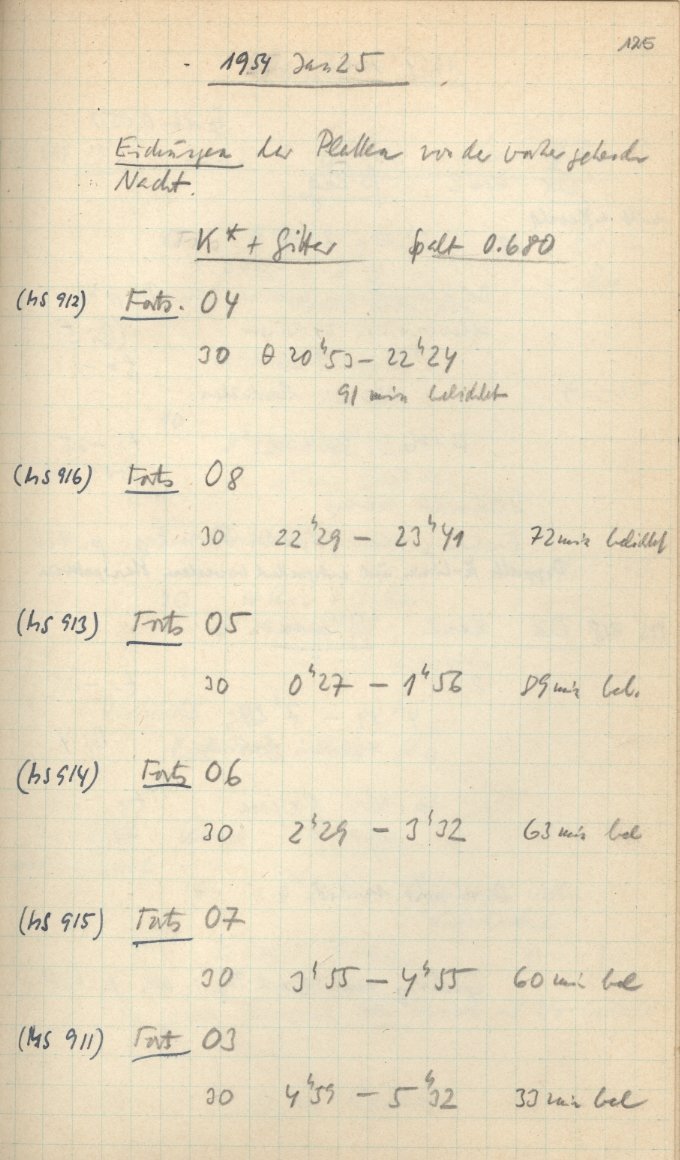 125
1954 Jan 25
Eichungen der Platten von der vorhergehenden
Nacht.
K* + Gitter Spalt 0.680
(hS 912) Forts. 04
30 θ 20ʰ53 – 22ʰ24
91 min belichtet
(hS 916) Forts 08
30 22ʰ29 – 23ʰ41 72 min belichtet
(hS 913) Forts 05
30 0ʰ27 – 1ʰ56 89 min bel.
(hS 914) Forts 06
30 2ʰ29 – 3ʰ32 63 min bel
(hS 915) Forts 07
30 3ʰ55 – 4ʰ55 60 min bel
(hS 911) Forts 03
30 4ʰ59 – 5ʰ32 33 min bel